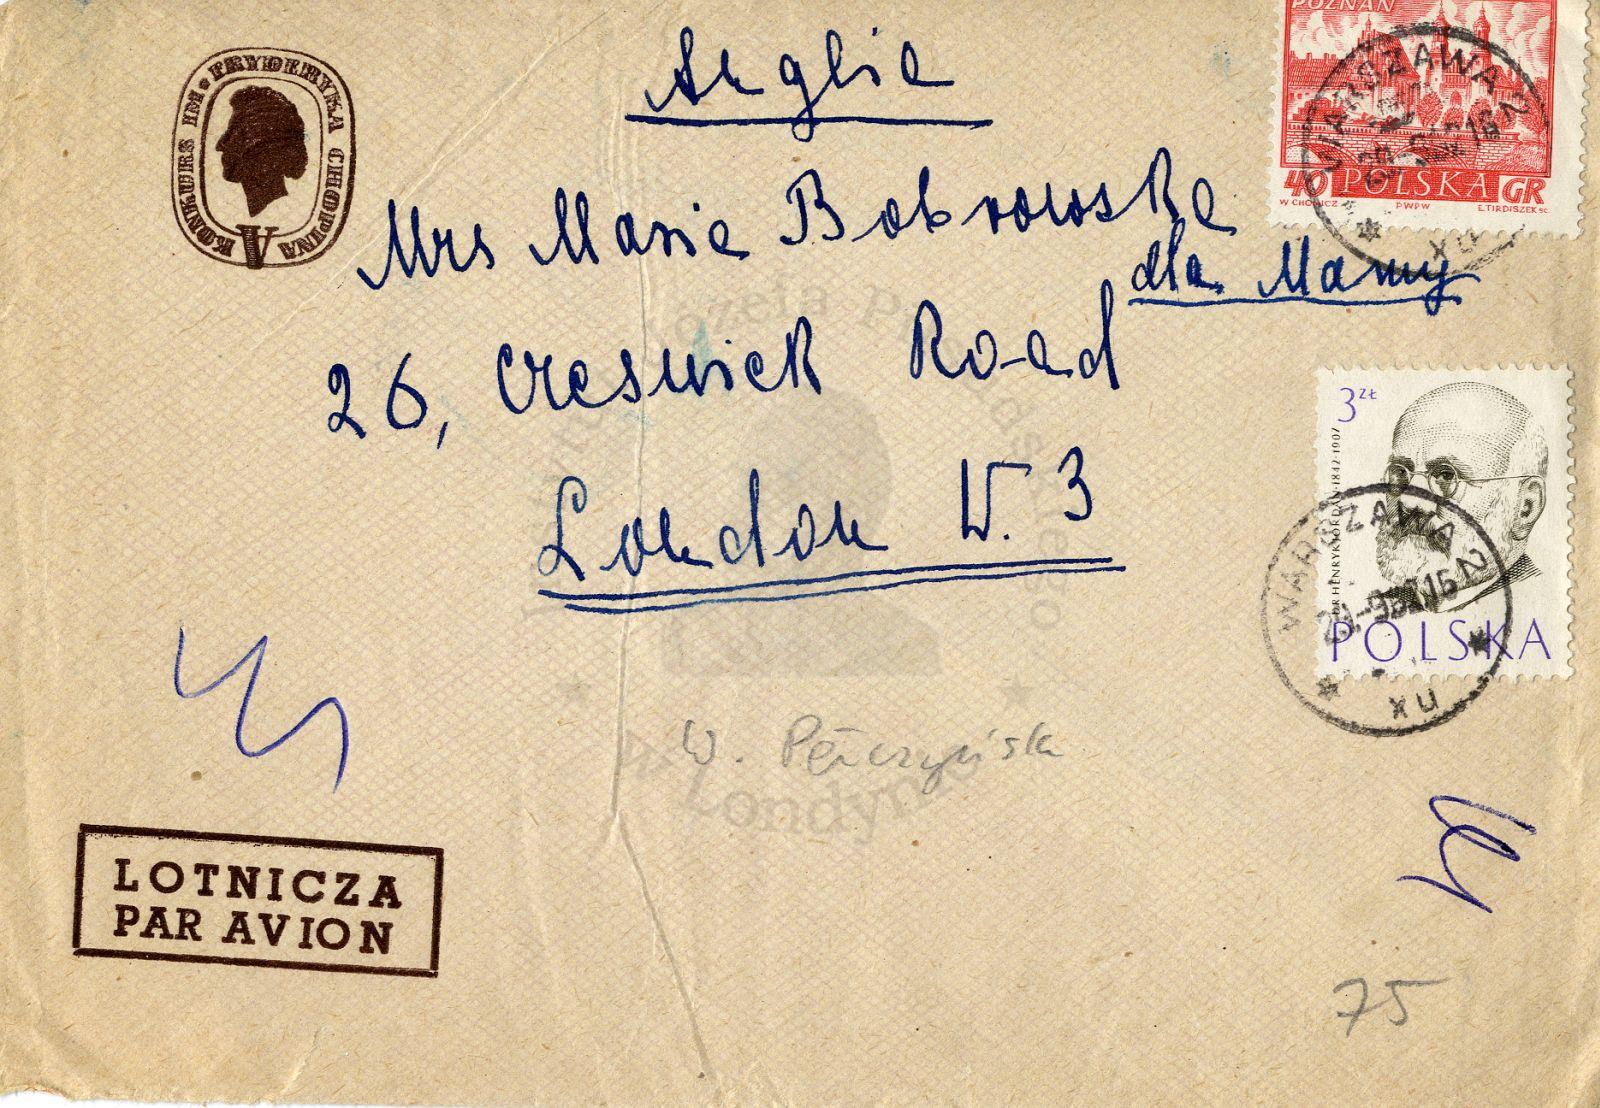 KONKURS IM. FRYDERYKA CHOPINA
V
Anglia
Mrs Maria Bobrowska
dla Mamy
26, Creswick Road
London W. 3
POZNAŃ
40 POLSKA GR
W CHOMICZ PWPW E.TIRDISZEK SC.
WARSZAWA 2
3 ZŁ
DR HENRYK JORDAN·1842·1907
POLSKA
WARSZAWA 2
Józefa Piłsudskiego
w Londynie
W. Pełczyńska
LOTNICZA
PAR AVION
75